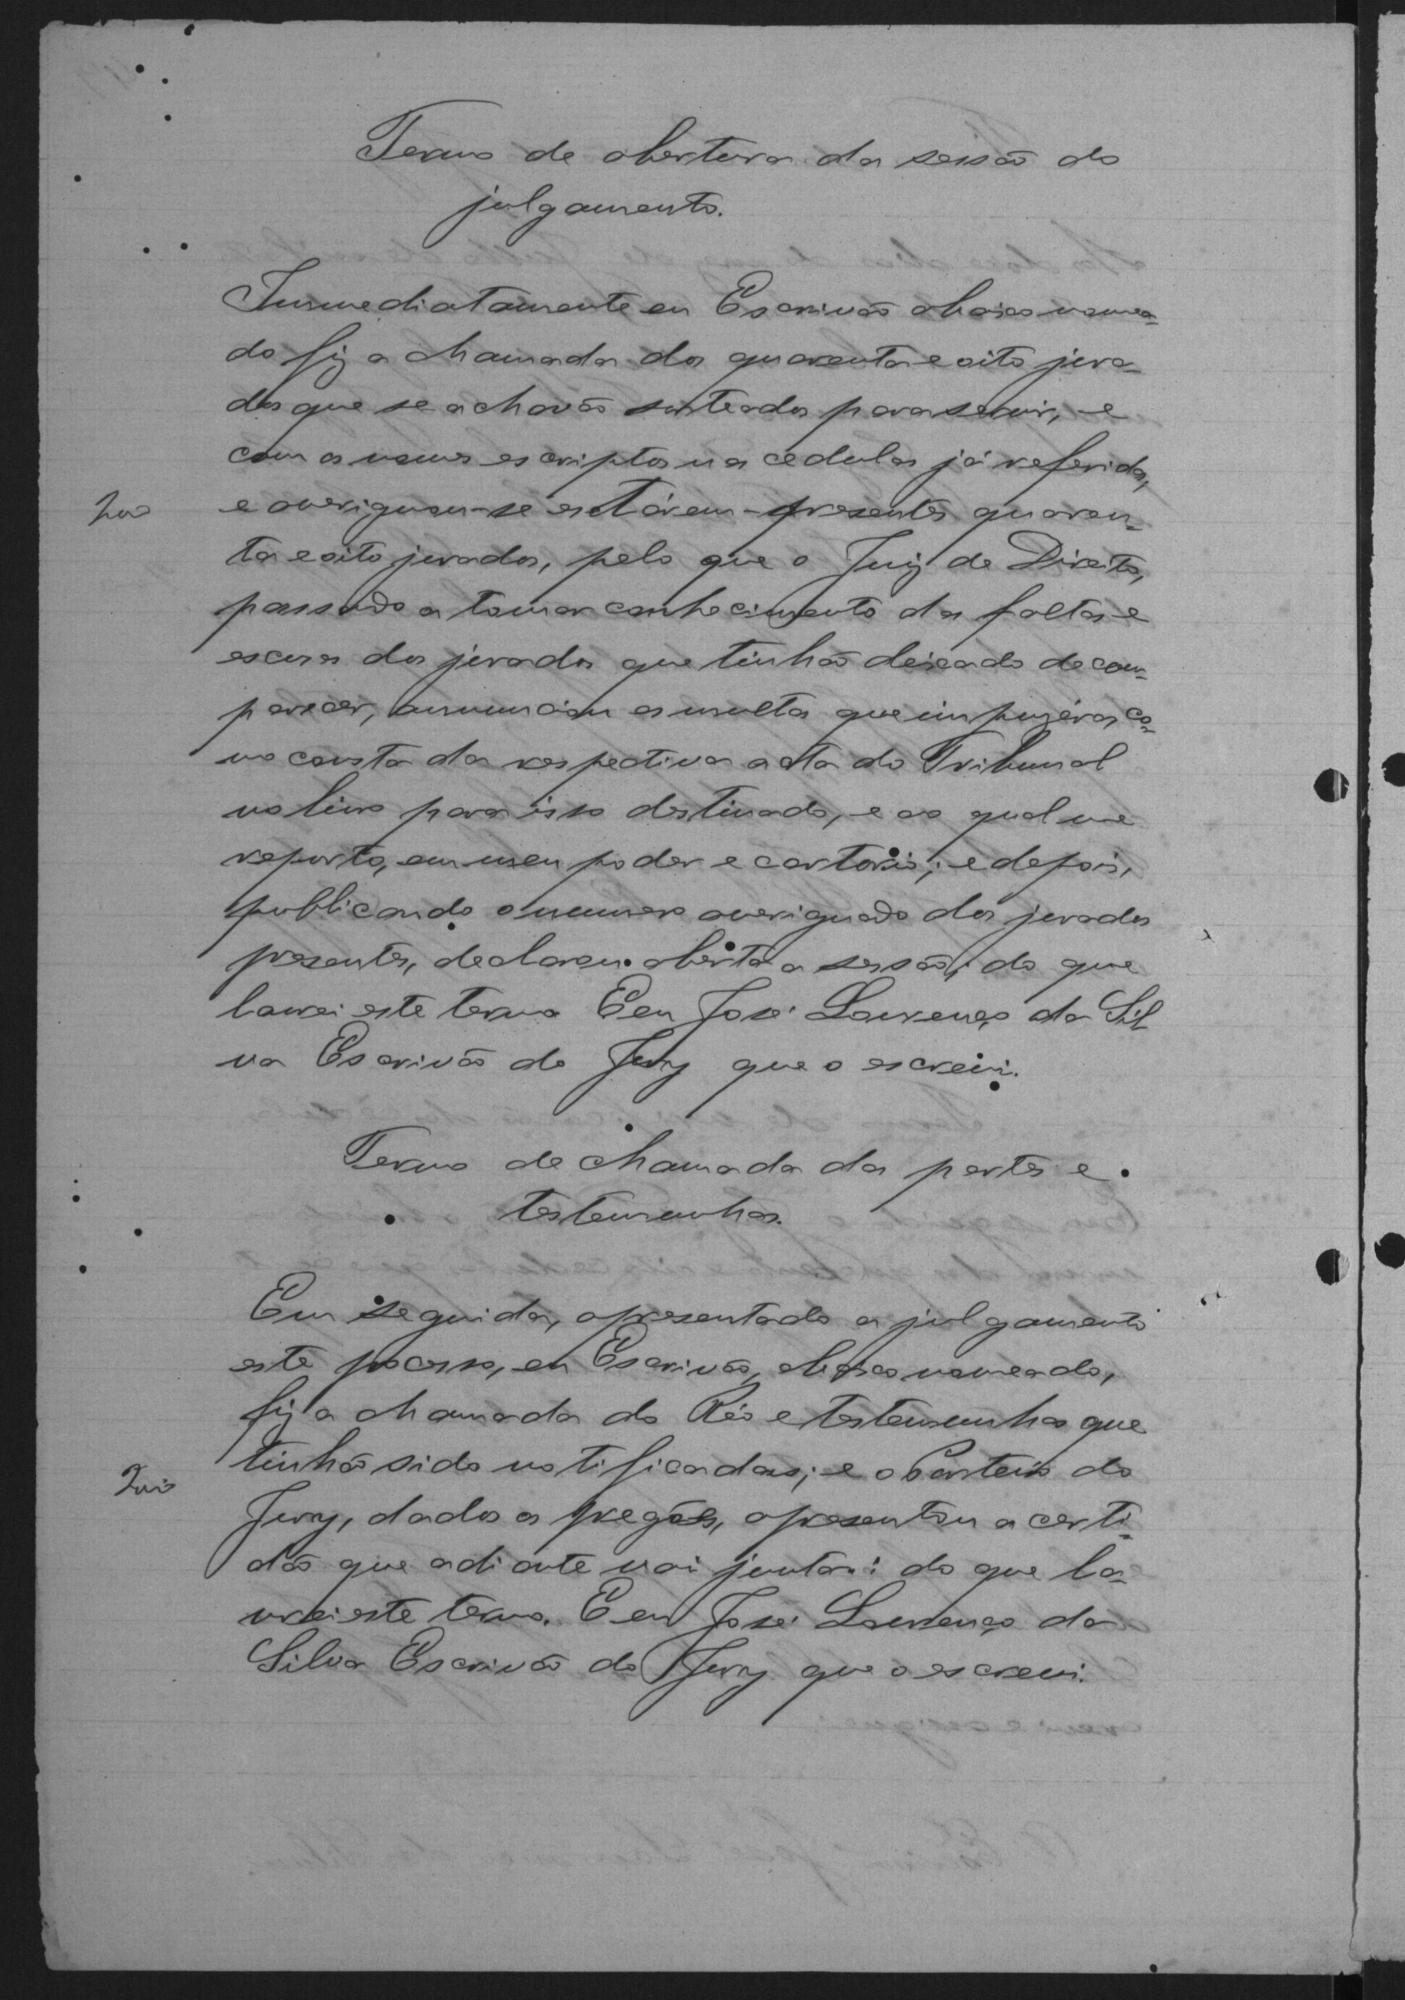 Termo de abertura da sessão do
julgamento.
Immediatamente eu Escrivão abaixo nomea-
do fiz a chamada dos quarenta e oito jura-
dos que se achavão sorteados para servir, e
com os nomes escriptos nas cedulas já referidas,
e averiguou-se estárem presentes quaren-
ta e oito jurados, pelo que o Juiz de Direito,
passando a tomar conhecimento das faltas e
escusas dos jurados que tinhão deixado de com-
parecer, annunciou as multas que impuzéra, co-
mo consta da respectiva acta do Tribunal
no livro para isso destinado, e ao qual me
reporto, em meu poder e cartorio; e depois,
publicando o numero averiguado dos jurados
presentes, declarou aberta a sessão; do que
lavrei este termo E eu José Lourenço da Sil
va Escrivão do Jury que o escrevi.
Termo de chamada das partes e
testemunhas.
Em seguida, apresentado a julgamento
este processo, eu Escrivão, abaixo nomeado,
fiz a chamada do Réo e testemunhas que
tinhão sido notificadas; e o Porteiro do
Jury, dados os pregões, apresentou a certi-
dão que adiante vai junta: do que la-
vrei este termo. E eu José Lourenço da
Silva Escrivão do Jury que o escrevi.